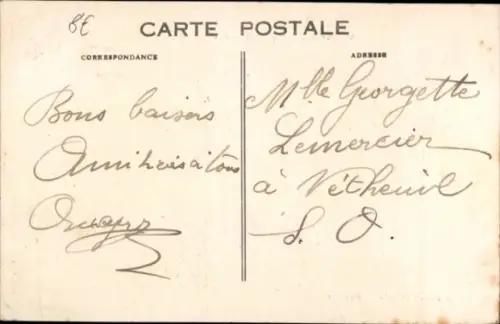 8€
CARTE POSTALE
CORRESPONDANCE
ADRESSE
Bons baisers
Amitiés à tous
Mlle Georgette
Lemercier
à Vétheuil
S. O.